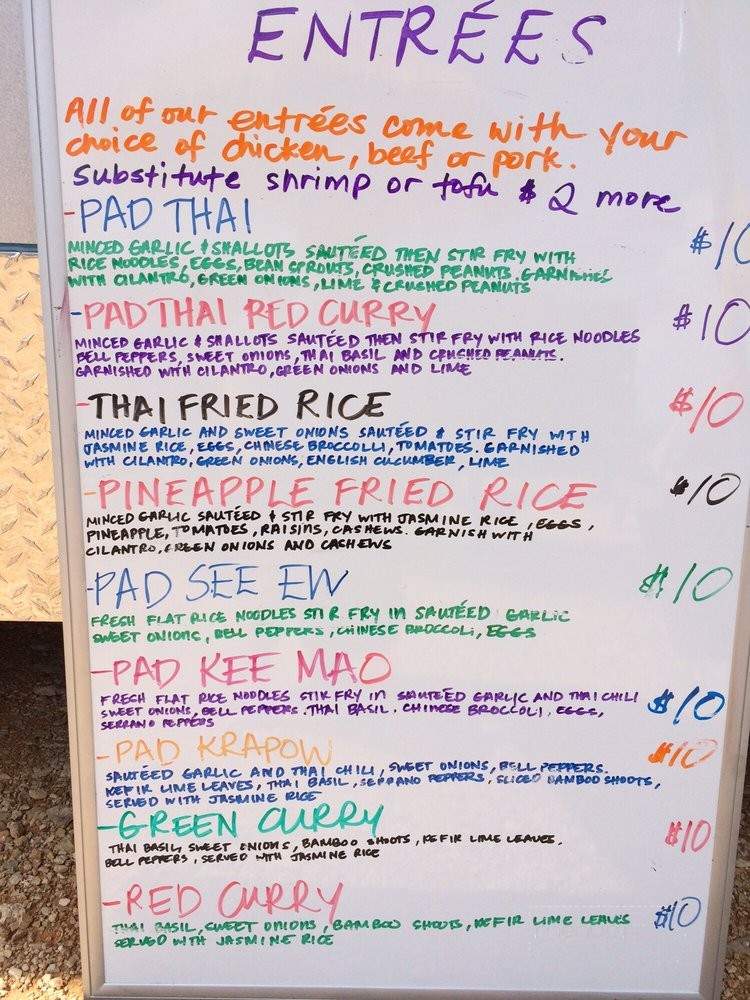 ENTRÉES
All of our entrées come with your
choice of chicken, beef or pork.
Substitute shrimp or tofu $2 more
-PAD THAI $10
MINCED GARLIC & SHALLOTS SAUTÉED THEN STIR FRY WITH
RICE NOODLES, EGGS, BEAN SPROUTS, CRUSHED PEANUTS. GARNISHED
WITH CILANTRO, GREEN ONIONS, LIME & CRUSHED PEANUTS
-PAD THAI RED CURRY $10
MINCED GARLIC & SHALLOTS SAUTÉED THEN STIR FRY WITH RICE NOODLES
BELL PEPPERS, SWEET ONIONS, THAI BASIL AND CRUSHED PEANUTS.
GARNISHED WITH CILANTRO, GREEN ONIONS AND LIME
-THAI FRIED RICE $10
MINCED GARLIC AND SWEET ONIONS SAUTÉED & STIR FRY WITH
JASMINE RICE, EGGS, CHINESE BROCCOLLI, TOMATOES. GARNISHED
WITH CILANTRO, GREEN ONIONS, ENGLISH CUCUMBER, LIME
-PINEAPPLE FRIED RICE $10
MINCED GARLIC SAUTÉED & STIR FRY WITH JASMINE RICE, EGGS,
PINEAPPLE, TOMATOES, RAISINS, CASHEWS. GARNISH WITH
CILANTRO, GREEN ONIONS AND CASHEWS
-PAD SEE EW $10
FRESH FLAT RICE NOODLES STIR FRY IN SAUTÉED GARLIC
SWEET ONIONS, BELL PEPPERS, CHINESE BROCCOLI, EGGS
-PAD KEE MAO
FRESH FLAT RICE NOODLES STIR FRY IN SAUTÉED GARLIC AND THAI CHILI $10
SWEET ONIONS, BELL PEPPERS. THAI BASIL. CHINESE BROCCOLI, EGGS,
SERRANO PEPPERS
-PAD KRAPOW $10
SAUTÉED GARLIC AND THAI CHILI, SWEET ONIONS, BELL PEPPERS.
KEFIR LIME LEAVES, THAI BASIL, SERRANO PEPPERS, SLICED BAMBOO SHOOTS,
SERVED WITH JASMINE RICE
-GREEN CURRY $10
THAI BASIL, SWEET ONIONS, BAMBOO SHOOTS, KEFIR LIME LEAVES.
BELL PEPPERS, SERVED WITH JASMINE RICE
-RED CURRY $10
THAI BASIL, SWEET ONIONS, BAMBOO SHOOTS, KEFIR LIME LEAVES
SERVED WITH JASMINE RICE